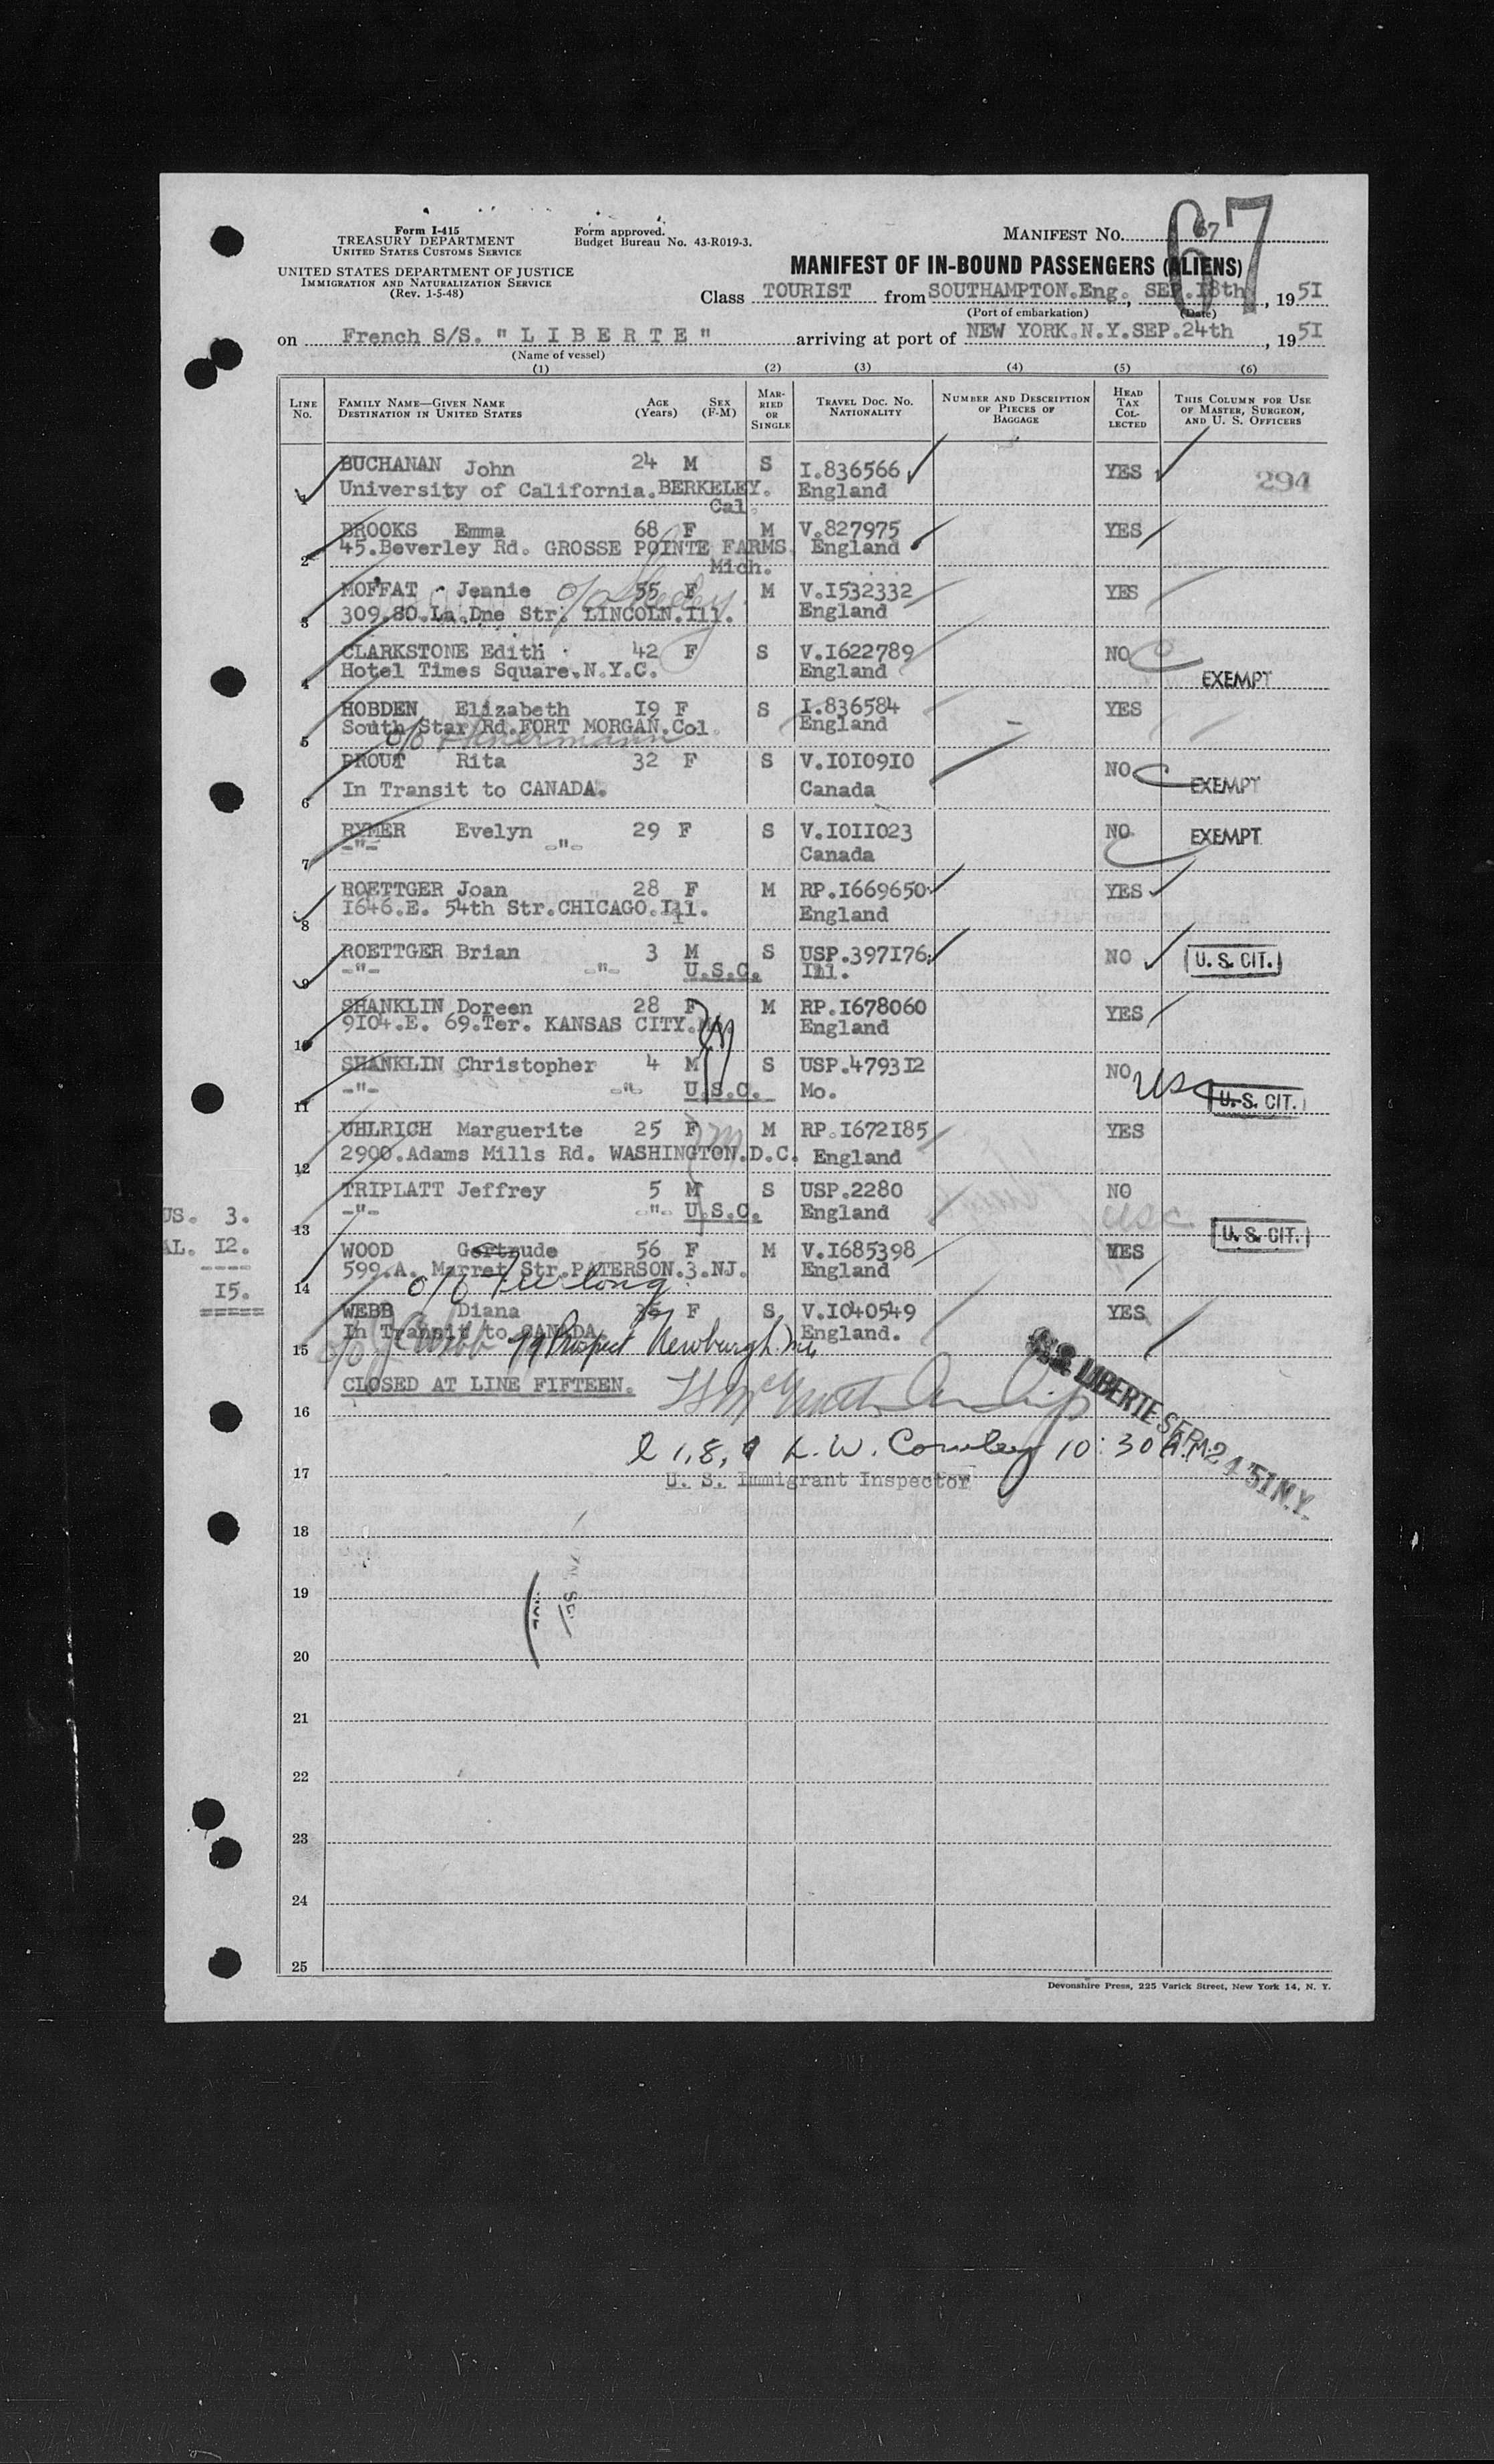 Form I-415
TREASURY DEPARTMENT
UNITED STATES CUSTOMS SERVICE
UNITED STATES DEPARTMENT OF JUSTICE
IMMIGRATION AND NATURALIZATION SERVICE
(Rev. 1-5-48)
Form approved.
Budget Bureau No. 43-R019-3.
MANIFEST NO. 67
67
MANIFEST OF IN-BOUND PASSENGERS (ALIENS)
Class TOURIST from SOUTHAMPTON.Eng., SEP.I8th, 1951
(Port of embarkation) (Date)
on French S/S. " L I B E R T E " arriving at port of NEW YORK.N.Y.SEP.24th, 195I
(Name of vessel)
(1) (2) (3) (4) (5) (6)
LINE No. FAMILY NAME—GIVEN NAME DESTINATION IN UNITED STATES AGE (Years) SEX (F-M) MARRIED OR SINGLE TRAVEL DOC. NO. NATIONALITY NUMBER AND DESCRIPTION OF PIECES OF BAGGAGE HEAD TAX COLLECTED THIS COLUMN FOR USE OF MASTER, SURGEON, AND U. S. OFFICERS
1 BUCHANAN John 24 M S I.836566 YES 294
University of California.BERKELEY. England
Cal.
2 BROOKS Emma 68 F M V.827975 YES
45.Beverley Rd. GROSSE POINTE FARMS England
Mich.
3 MOFFAT - Jeanie 55 F M V.I532332 YES
309.SO.La.Dne Str. LINCOLN.Ill. England
4 CLARKSTONE Edith 42 F S V.I622789 NO
Hotel Times Square.N.Y.C. England EXEMPT
5 HOBDEN Elizabeth I9 F S I.836584 YES
South Star Rd.FORT MORGAN.Col. England
6 PROUT Rita 32 F S V.I0I09I0 NO
In Transit to CANADA. Canada EXEMPT
7 RYMER Evelyn 29 F S V.I0II023 NO EXEMPT
-"- -"- Canada
8 ROETTGER Joan 28 F M RP.I669650 YES
I646.E. 54th Str.CHICAGO.Ill. England
9 ROETTGER Brian 3 M S USP.397I76. NO U. S. CIT.
-"- -"- U.S.C. Ill.
10 SHANKLIN Doreen 28 F M RP.I678060 YES
9I04.E. 69.Ter. KANSAS CITY.Mo. England
11 SHANKLIN Christopher 4 M S USP.4793I2 NO USC
-"- -"- U.S.C. Mo. U.S. CIT.
12 UHLRICH Marguerite 25 F M RP.I672I85 YES
2900.Adams Mills Rd. WASHINGTON.D.C. England
13 TRIPLATT Jeffrey 5 M S USP.2280 NO
-"- -"- U.S.C. England USC U.S. CIT.
US. 3.
AL. I2.
----
I5.
=====
14 WOOD Gertrude 56 F M V.I685398 YES
599.A. Marret Str.PATERSON.3.NJ. England
c/o Furlong
15 WEBB Diana F S V.I040549 YES
In Transit to CANADA. England.
c/o Webb 99 Prospect Newburgh
CLOSED AT LINE FIFTEEN.
S.S. LIBERTE SEP 24 '51 N.Y.
16
l 1,8,9 L. W. Cowley 10:30 AM
17 U. S. Immigrant Inspector
18
19
20
21
22
23
24
25
Devonshire Press, 225 Varick Street, New York 14, N. Y.